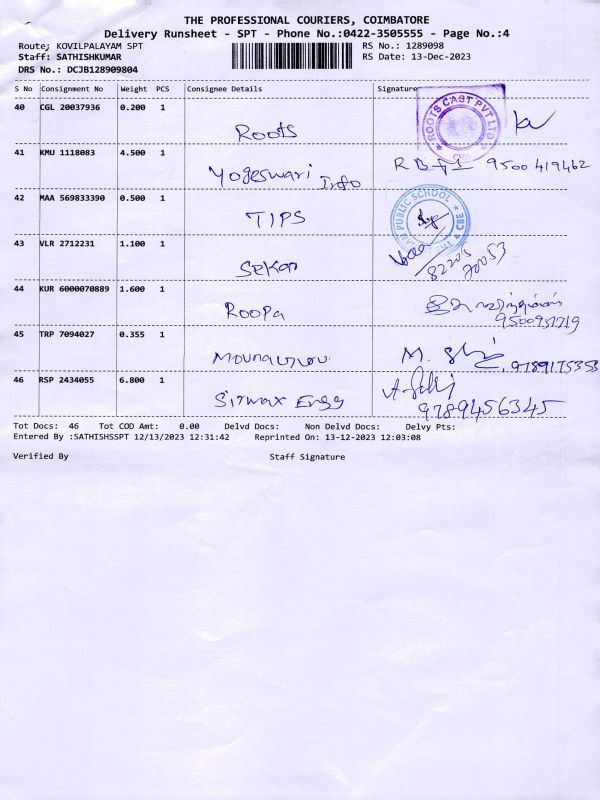 THE PROFESSIONAL COURIERS, COIMBATORE
Delivery Runsheet - SPT - Phone No.:0422-3505555 - Page No.:4
Route; KOVILPALAYAM SPT RS No.: 1289098
Staff: SATHISHKUMAR RS Date: 13-Dec-2023
DRS No.: DCJB128909804
S No Consignment No Weight PCS Consignee Details Signature
40 CGL 20037936 0.200 1
Roots ROOTS CAST PVT LTD
41 KMU 1118083 4.500 1
Yogeswari Info 9500419462
42 MAA 569833390 0.500 1
TIPS PUBLIC SCHOOL CBE
43 VLR 2712231 1.100 1
Sekar
44 KUR 6000070889 1.600 1
Roopa 9500951719
45 TRP 7094027 0.355 1
M. 9789175353
46 RSP 2434055 6.800 1
Sirwax Engg 9789456345
Tot Docs: 46 Tot COD Amt: 0.00 Delvd Docs: Non Delvd Docs: Delvy Pts:
Entered By :SATHISHSSPT 12/13/2023 12:31:42 Reprinted On: 13-12-2023 12:03:08
Verified By Staff Signature